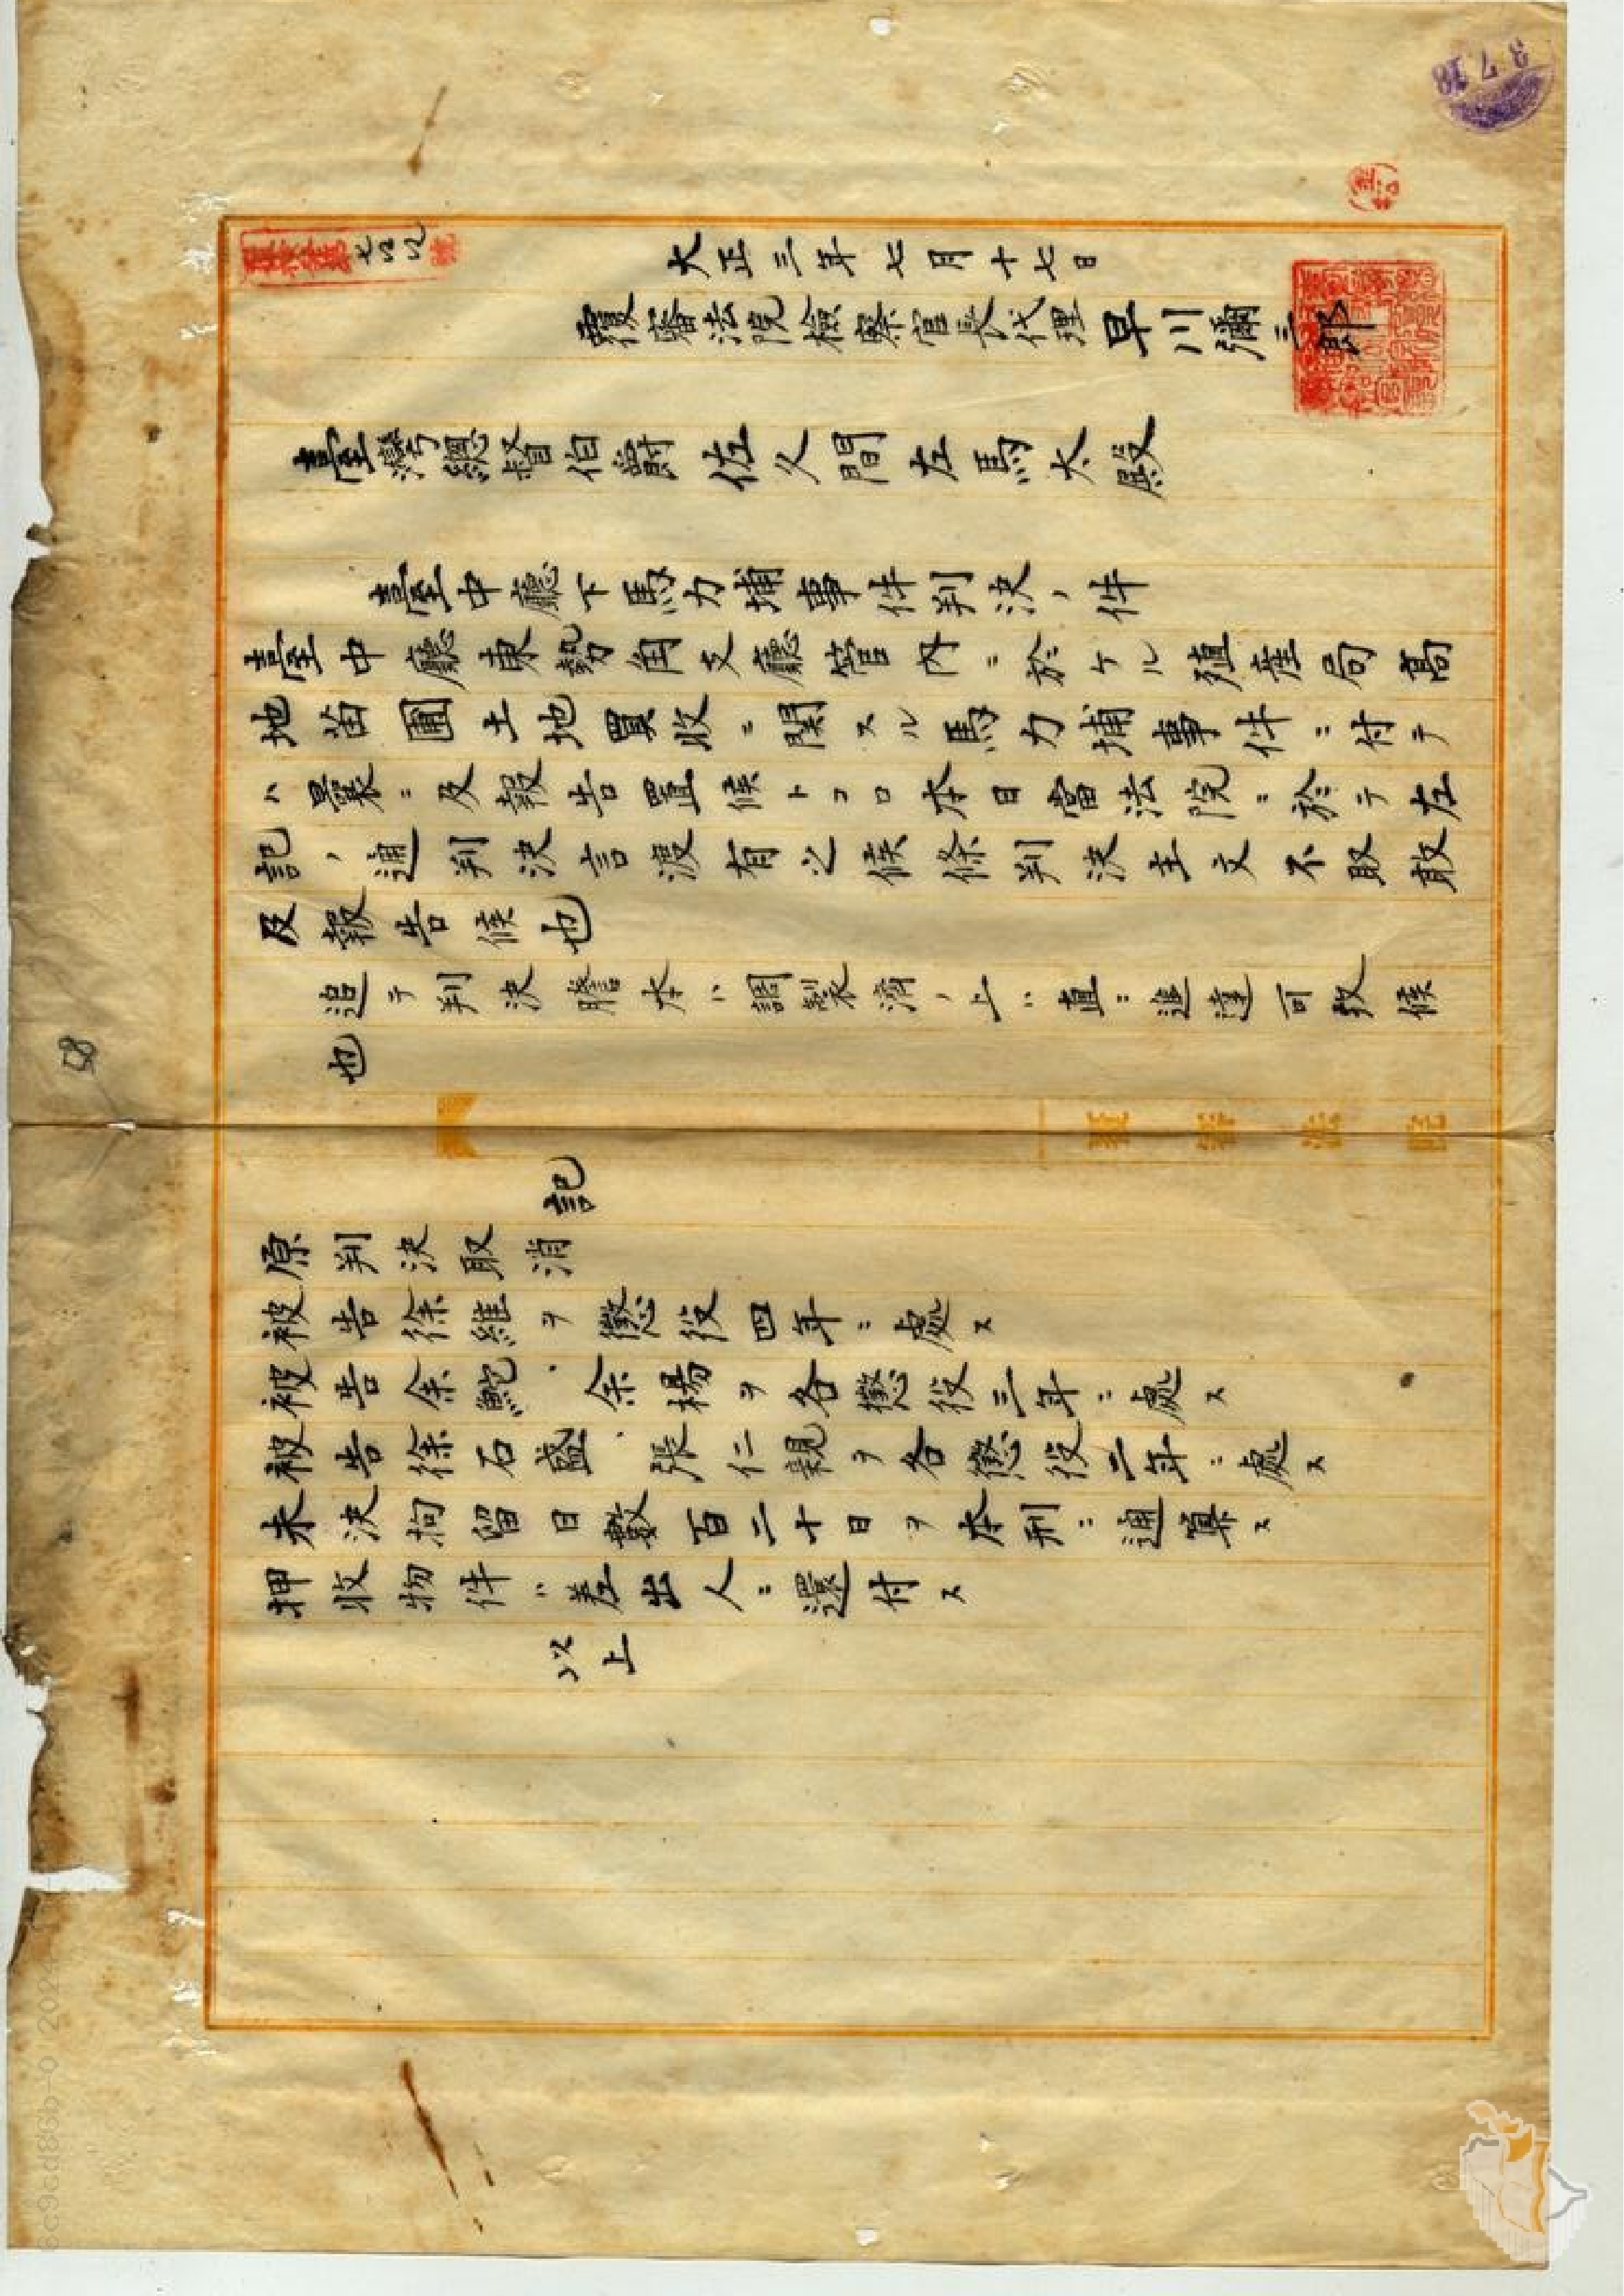 大正三年七月十七日
覆審法院檢察官長代理 早川彌三郎
臺灣總督伯爵佐久間左馬太殿
臺中廳下馬力埔事件判決ノ件
臺中廳東勢角支廳管内ニ於ケル殖産局高
地苗圃土地買收ニ関スル馬力埔事件ニ付テ
ハ曩ニ及報告置候トコロ本日當法院ニ於テ左
記ノ通判決言渡有之候條判決主文不取敢
及報告候也
追テ判決謄本ハ調製濟ノ上ハ直ニ進達可致候
也
覆審法院
記
原判決取消
被告徐維ヲ懲役四年ニ處ス
被告余鮀、余楊ヲ各懲役三年ニ處ス
被告徐石盛、張仁親ヲ各懲役二年ニ處ス
未決拘留日數百二十日ヲ本刑ニ通算ス
押收物件ハ差出人ニ還付ス
以上
3.7.18
58